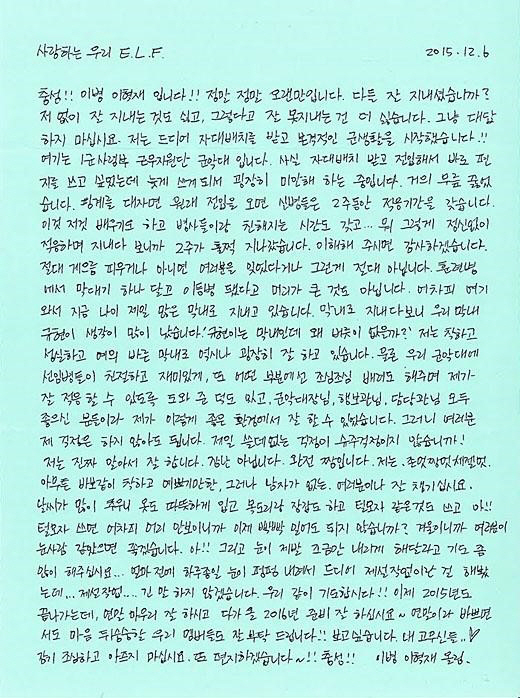 사랑하는 우리 E.L.F. 2015.12.6
충성!! 이병 이혁재 입니다!! 정말 정말 오랜만입니다. 다들 잘 지내셨습니까?
저 없이 잘 지내는 것도 싫고, 그렇다고 잘 못지내는 건 더 싫습니다. 그냥 대답
하지 마십시요. 저는 드디어 자대배치를 받고 본격적인 군생활을 시작했습니다.!!
여기는 1군사령부 근무지원단 군악대 입니다. 사실 자대배치 받고 전입해서 바로 편
지를 쓰고 싶었는데 늦게 쓰게 되서 굉장히 미안해 하는 중입니다. 거의 무릎 꿇었
습니다. 핑계를 대자면 원래 전입을 오면 신병들은 2주동안 적응기간을 갖습니다.
이것 저것 배우기도 하고 병사들이랑 친해지는 시간도 갖고... 뭐 그렇게 정신없이
적응하며 지내다 보니까 2주가 훌쩍 지나갔습니다. 이해해 주시면 감사하겠습니다.
절대 게으름 피우거나 아니면 여러분을 잊었다거나 그런게 절대 아닙니다. 훈련병
에서 막대기 하나 달고 이등병 됐다고 머리가 큰 것도 아닙니다. 어차피 여기
와서 지금 나이 제일 많은 막내로 지내고 있습니다. 막내로 지내다보니 우리 막내
규현이 생각이 많이 났습니다. '규현이는 막내인데 왜 버릇이 없을까?' 저는 착하고
성실하고 예의 바른 막내로 역시나 굉장히 잘 하고 있습니다. 물론 우리 군악대에
선임병들이 친절하고 재미있게, 또 어떤 부분에선 조심조심 배려도 해주며 제가
잘 적응 할 수 있도록 도와 준 덕도 있고, 군악대장님, 행보관님, 담당관님 모두
좋으신 분들이라 제가 이렇게 좋은 환경에서 잘 할 수 있었습니다. 그러니 여러분
제 걱정은 하지 않아도 됩니다. 제일 쓸데없는 걱정이 슈주걱정이지 않습니까!
저는 진짜 알아서 잘 합니다. 장난 아닙니다. 완전 짱입니다. 저는.
아무튼 바보같이 착하고 예쁘기만한, 그러나 남자가 없는. 여러분이나 잘 챙기십시요.
날씨가 많이 추우니 옷도 따뜻하게 입고 목도리랑 장갑도 하고 털모자 같은것도 쓰고 아!!
털모자 쓰면 어차피 머리 안보이니까 이제 빡빡 밀어도 되지 않습니까? 겨울이니까 여러분이
눈사람 같았으면 좋겠습니다. 아!! 그리고 눈이 제발 조금만 내리게 해달라고 기도 좀
많이 해주십시요... 얼마 전에 하루종일 눈이 펑펑 내려서 드디어 제설작업이란 걸 해봤
는데... 제설작업.... 긴 말 하지 않겠습니다. 우리 같이 기도합시다!! 이제 2015년도
끝나가는데, 연말 마무리 잘 하시고 다가올 2016년 준비 잘 하십시요~ 연말이라 바쁘면
서도 마음 뒤숭숭할 우리 멤버들도 잘 부탁 드립니다!! 보고싶습니다. 내 고무신들..♥
감기 조심하고 아프지 마십시요. 또 편지하겠습니다~!! 충성!! 이병 이혁재 올림.